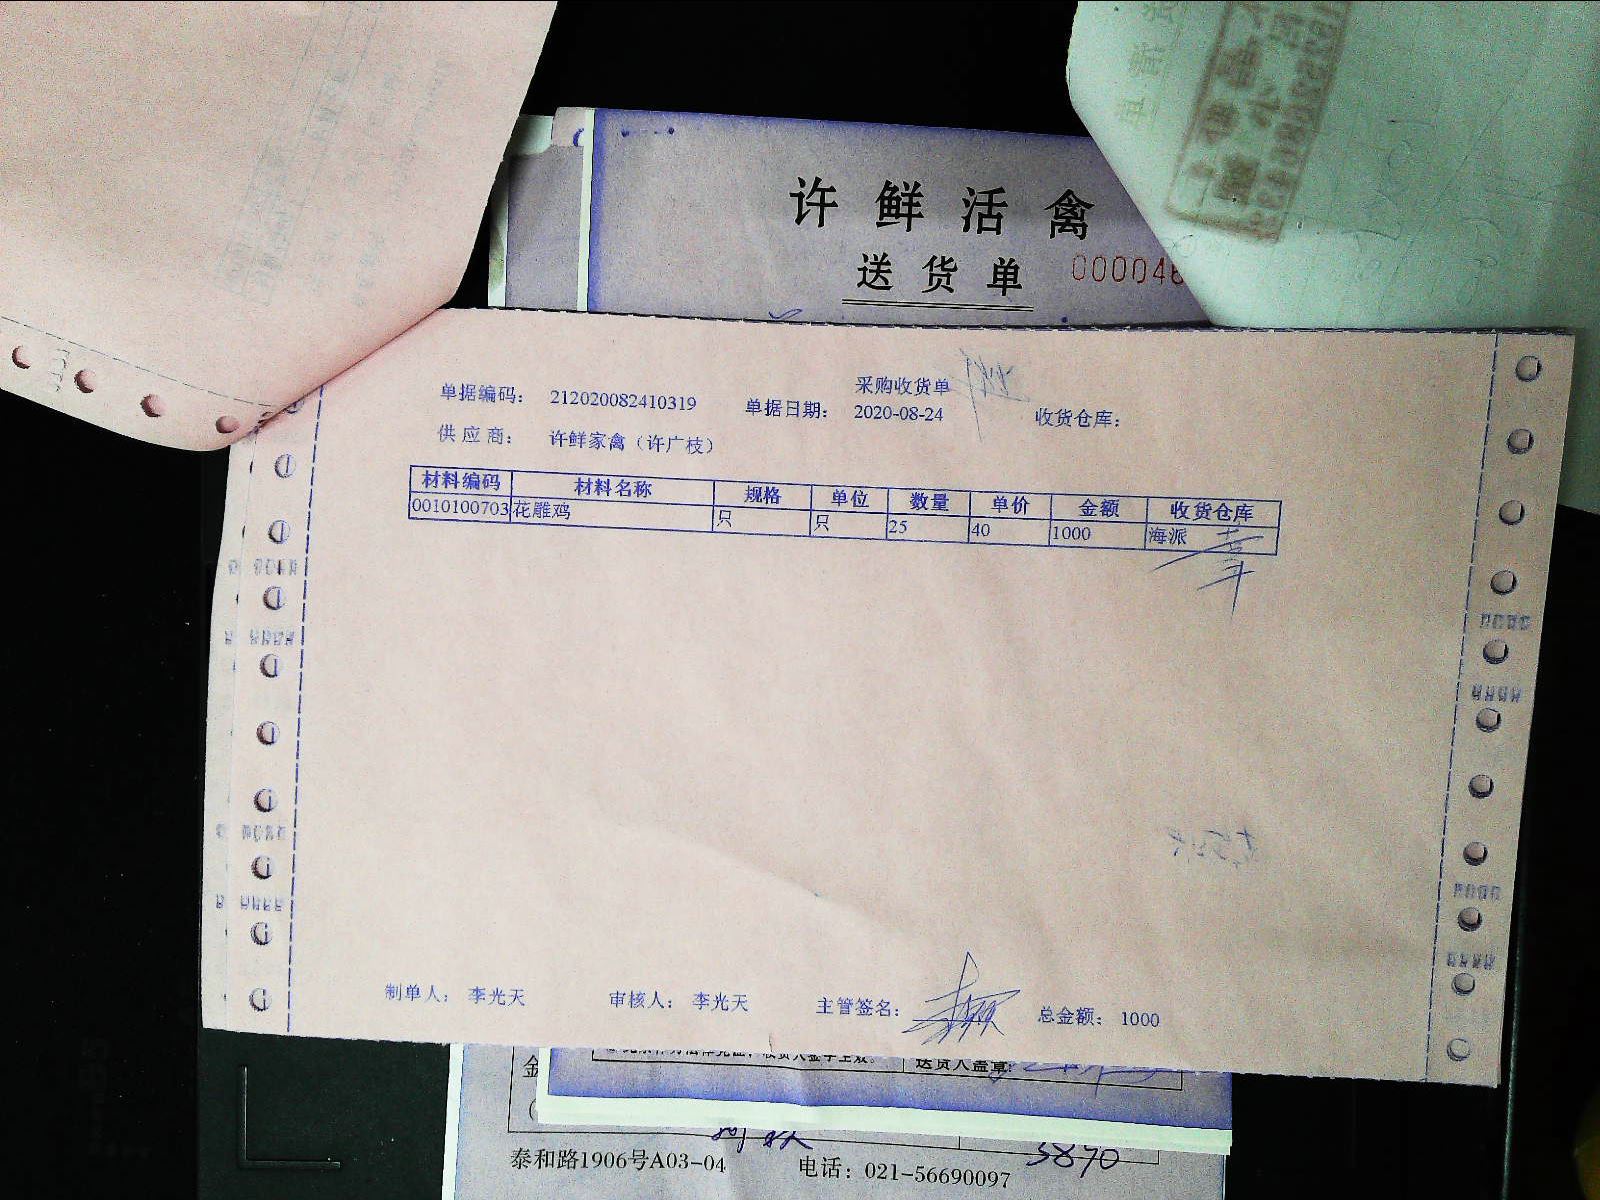 许鲜活禽
送货单 000046
采购收货单
单据编码： 212020082410319 单据日期： 2020-08-24 收货仓库：
供应商： 许鲜家禽（许广枝）
材料编码 材料名称 规格 单位 数量 单价 金额 收货仓库
0010100703 花雕鸡 只 只 25 40 1000 海派
制单人： 李光天 审核人： 李光天 主管签名： 总金额： 1000
送货人盖章:
金
5870
泰和路1906号A03-04 电话：021-56690097